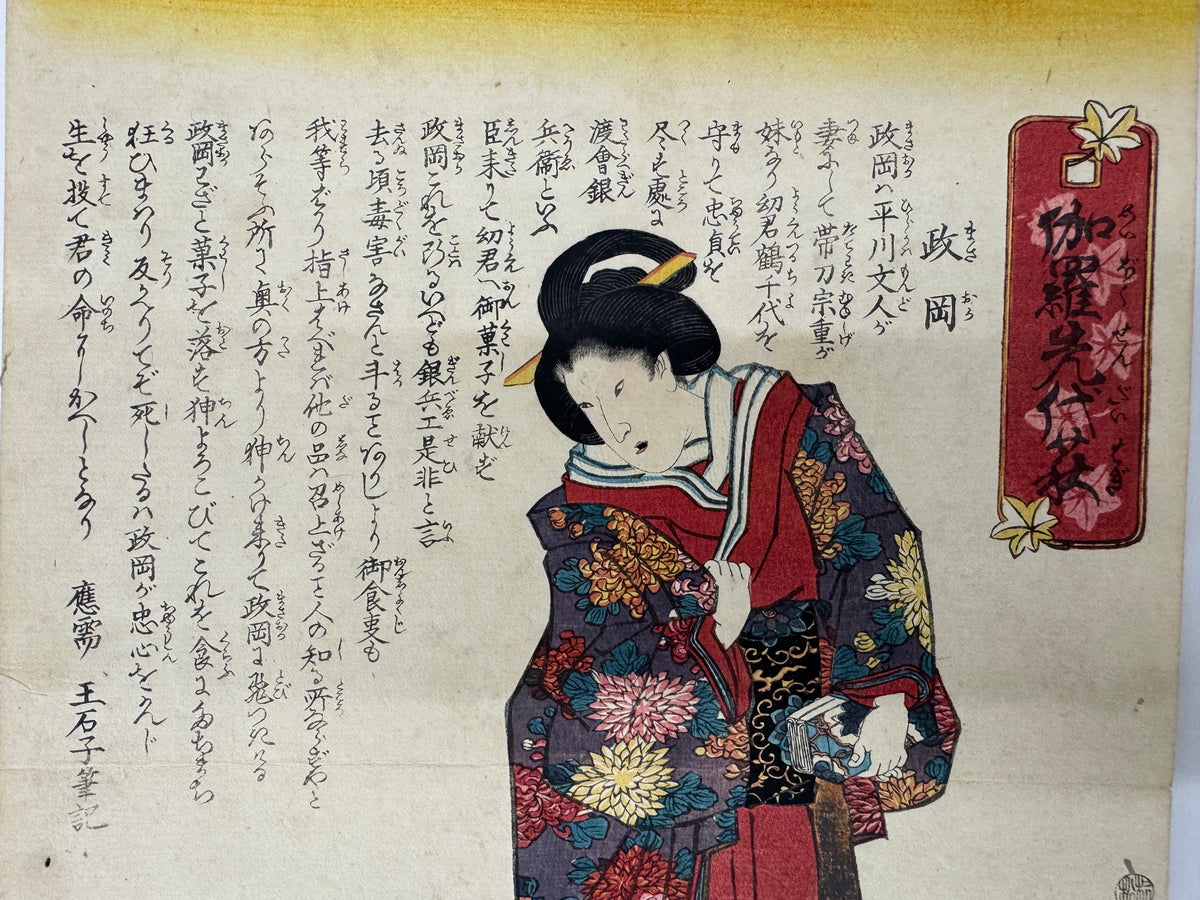 伽羅先代萩
政岡
政岡ハ平川文人が
妻にして帯刀宗重が
妹なり幼君鶴千代を
守りて忠貞を
尽す處に
渡會銀
兵衞といふ
臣来りて幼君へ御菓子を献ず
政岡これを
いへども銀兵工是非と言
去る頃毒害なさんと斗ることありしより御食事も
我等ばかり指上すべれバ他の品ハ召上ざること人の知る所ならずやと
あらそふ所に奥の方より狆かけ来りて政岡に飛つきける
政岡わざと菓子を落す狆よろこびてこれを食にたちまち
狂ひまハり反かへりてぞ死したるハ政岡が忠心をかんじ
生を投て君の命にかへしとなり
應需 玉石子筆記